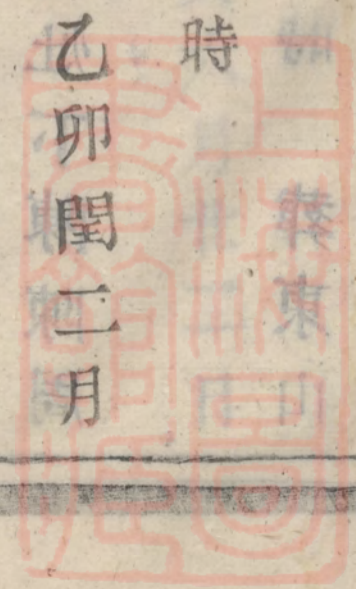 時
乙卯閏二月